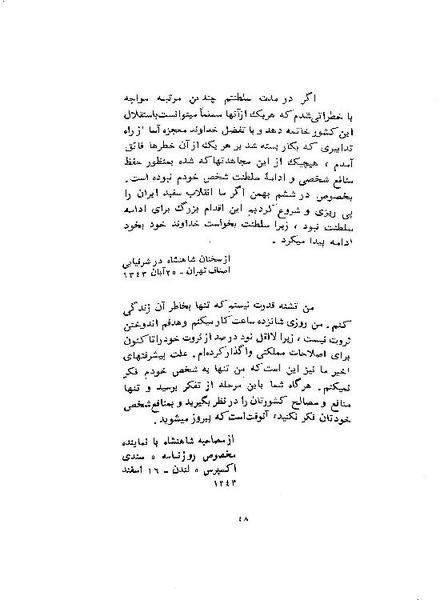 اگر در مدت سلطنتم چندین مرتبه مواجه
با خطراتی شدم که هریک ازآنها مسلماً میتوانست باستقلال
این کشور خاتمه دهد و با تفضل خداوند معجزه آسا از راه
تدابیری که بکار بسته شد بر هریک از آن خطرها فائق
آمدم ، هیچیک از این مجاهدتها که شده بمنظور حفظ
منافع شخصی و ادامهٔ سلطنت شخص خودم نبوده است .
بخصوص در ششم بهمن اگر ما انقلاب سفید ایران را
پی ریزی و شروع کردیم این اقدام بزرگ برای ادامه
سلطنت نبود ، زیرا سلطنت بخواست خداوند خود بخود
ادامه پیدا میکرد .
از سخنان شاهنشاه در شرفیابی
اصناف تهران - ۲۵ آبان ۱۳۴۳
من تشنه قدرت نیستم که تنها بخاطر آن زندگی
کنم . من روزی شانزده ساعت کار میکنم و هدفم اندوختن
ثروت نیست ، زیرا لااقل نود درصد از ثروت خود را تا کنون
برای اصلاحات مملکتی واگذار کرده‌ام . علت پیشرفتهای
اخیر ما نیز این است که من تنها به شخص خودم فکر
نمیکنم . هرگاه شما باین مرحله از تفکر برسید و تنها
منافع و مصالح کشورتان را در نظر بگیرید و بمنافع شخص
خودتان فکر نکنید، آنوقت است که پیروز میشوید .
از مصاحبه شاهنشاه با نماینده
مخصوص روزنامه « سندی
اکسپرس » لندن - ۱۶ اسفند
۱۳۴۳
۴۸